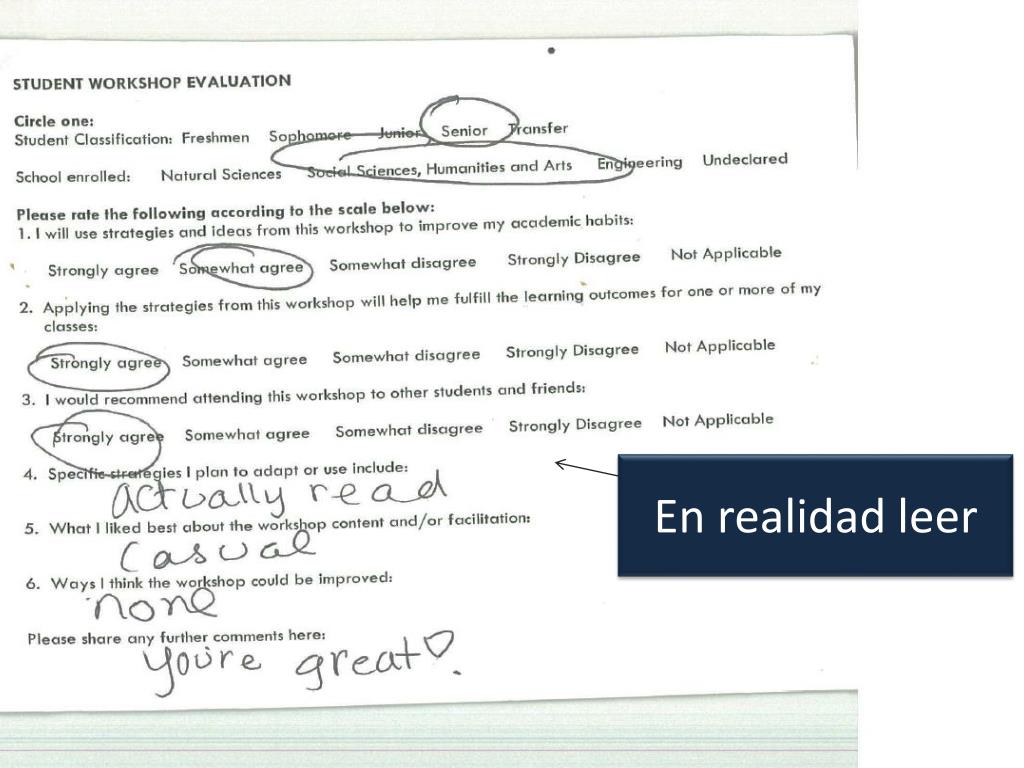 STUDENT WORKSHOP EVALUATION
Circle one:
Student Classification: Freshmen Sophomore Junior Senior Transfer
School enrolled: Natural Sciences Social Sciences, Humanities and Arts Engineering Undeclared
Please rate the following according to the scale below:
1. I will use strategies and ideas from this workshop to improve my academic habits:
Strongly agree Somewhat agree Somewhat disagree Strongly Disagree Not Applicable
2. Applying the strategies from this workshop will help me fulfill the learning outcomes for one or more of my
classes:
Strongly agree Somewhat agree Somewhat disagree Strongly Disagree Not Applicable
3. I would recommend attending this workshop to other students and friends:
Strongly agree Somewhat agree Somewhat disagree Strongly Disagree Not Applicable
4. Specific strategies I plan to adapt or use include:
actually read
En realidad leer
5. What I liked best about the workshop content and/or facilitation:
Casual
6. Ways I think the workshop could be improved:
none
Please share any further comments here:
you're great♡.